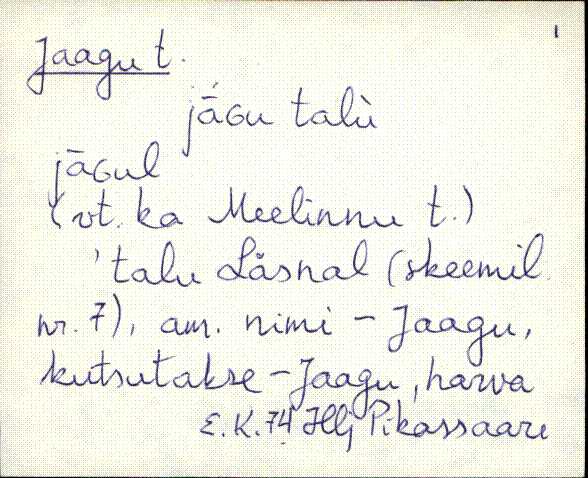 1
Jaagu t.
jāɢu talù
jāɢul
(vt. ka Meelinnu t.)
'talu Låsnal (skeemil
nr. 7), am. nimi - Jaagu,
kutsutakse - Jaagu, harva
E.K. 74 Hlj Pikassaare